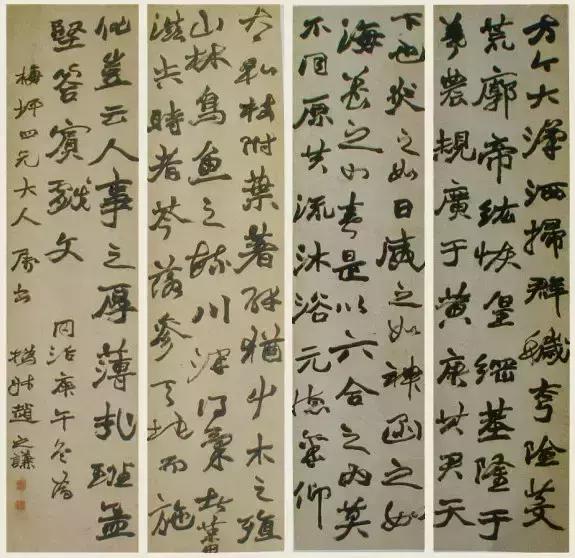 方今大漢洒掃群穢夷險芟
荒廓帝紘恢皇綱基隆于
羲農規廣于黃唐其君天
下也炎之如日威之如神函之如
海養之如春是以六合之內莫
不同原共流沐浴元德稟仰
太和枝附葉著譬猶屮木之殖
山林鳥魚之毓川澤得氣者蕃
滋失時者苓落參天地而施
化豈云人事之厚薄哉班孟
堅答賓戲文 同治庚午冬為
梅坪四兄大人屬書 撝叔趙之謙